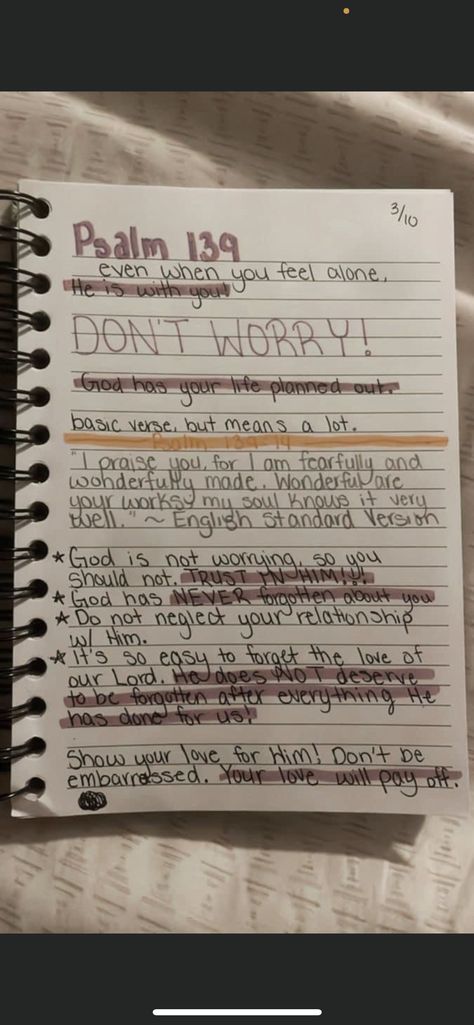 3/10
Psalm 139
even when you feel alone,
He is with you!
DON'T WORRY!
God has your life planned out.
basic verse, but means a lot.
Psalm 139:14
"I praise you, for I am fearfully and
wonderfully made. Wonderful are
your works; my soul knows it very
well." ~ English Standard Version
★ God is not worrying, so you
should not. TRUST IN HIM!!!
★ God has NEVER forgotten about you
★ Do not neglect your relationship
w/ Him.
★ It's so easy to forget the love of
our Lord. He does NOT deserve
to be forgotten after everything He
has done for us!
Show your love for Him! Don't be
embarressed. Your love will pay off.